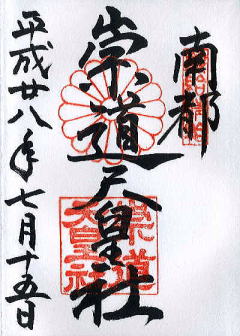 南都
崇道天皇社
平成廿八年七月十五日
崇道
天皇社